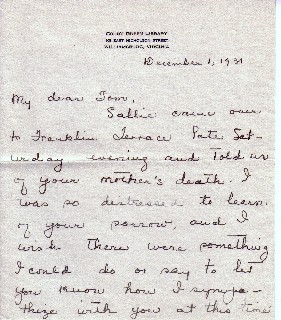 LIBRARY
EAST NICHOLSON STREET
WILLIAMSBURG, VIRGINIA
December 1, 1931
My dear Tom,
Sallie came over
to Franklin Terrace late Sat-
urday evening and told us
of your mother's death. I
was so distressed to learn
of your sorrow, and I
wish there were something
I could do or say to let
you know how I sympa-
thize with you at this time